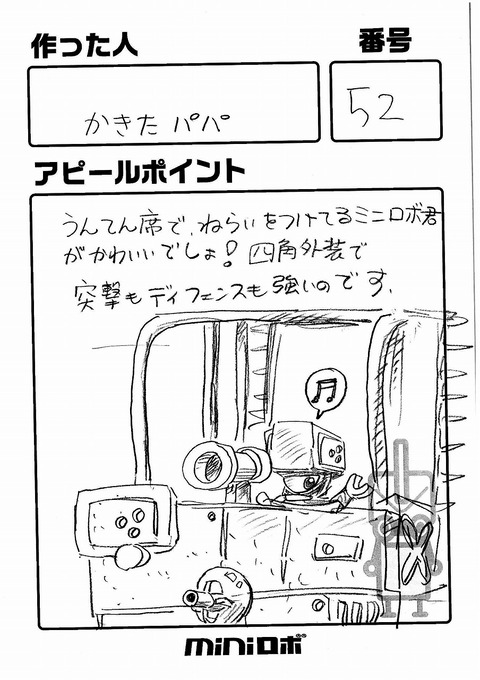 作った人
番号
かきた パパ
52
アピールポイント
うんてん席で、ねらいをつけてるミニロボ君
がかわいいでしょ! 四角外装で
突撃もディフェンスも強いのです。
miniロボ